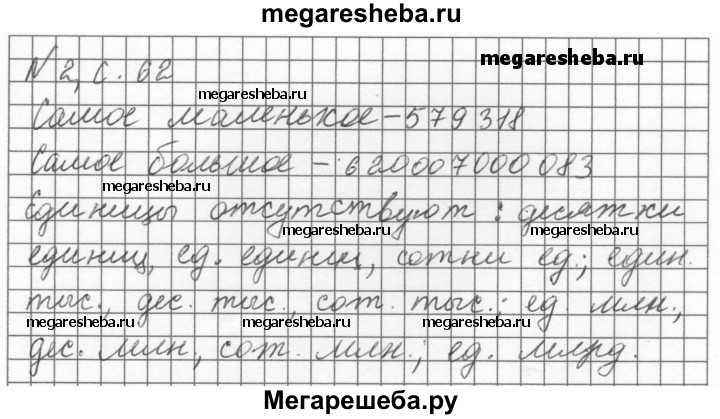 megaresheba.ru
megaresheba.ru
№ 2, с. 62
megaresheba.ru
Самое маленькое - 579 318
Самое большое - 620007000 083
megaresheba.ru
Единицы отсутствуют: десятки
megaresheba.ru megaresheba.ru
единиц, ед. единиц, сотни ед.; един.
тыс., дес. тыс., сот. тыс.; ед млн.,
megaresheba.ru megaresheba.ru megaresheba.ru
дес. млн., сот. млн.; ед. млрд.
Мегарешеба.ру